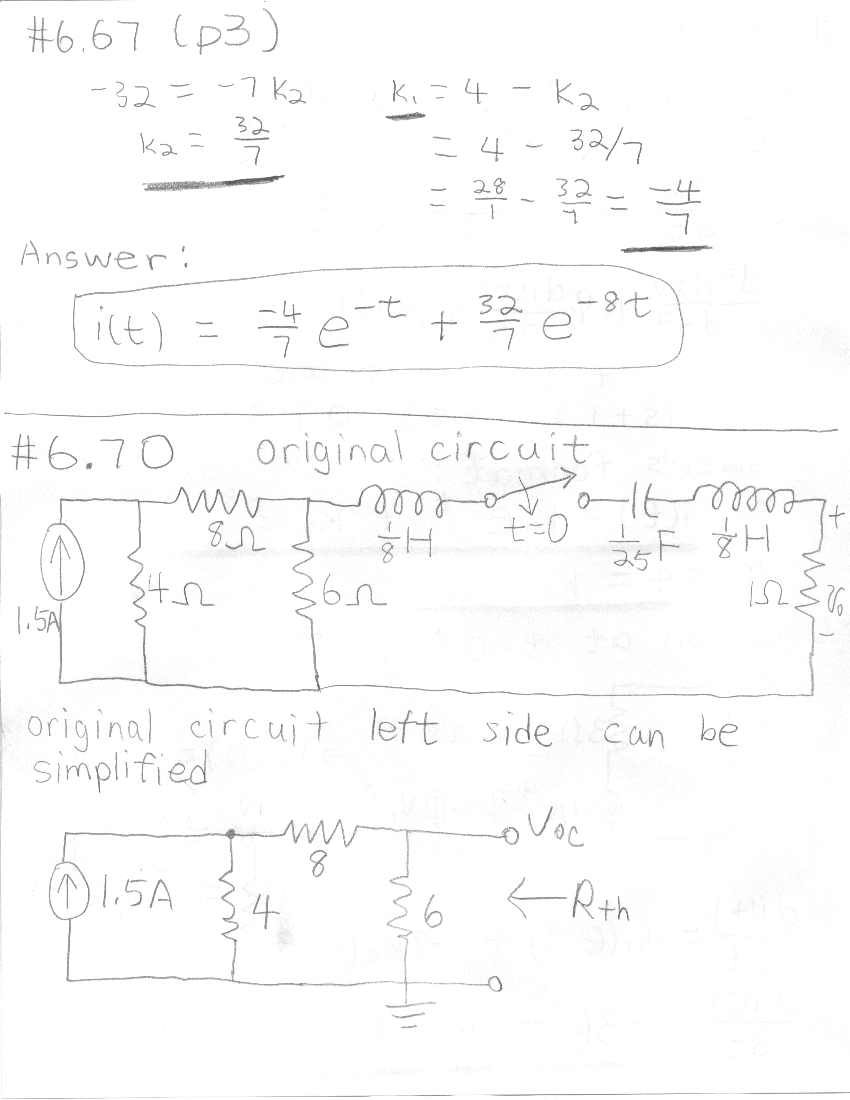 #6.67 (p3)
-32 = -7 k₂
k₂ = 32/7
k₁ = 4 - k₂
= 4 - 32/7
= 28/1 - 32/7 = -4/7
Answer:
i(t) = -4/7 e^-t + 32/7 e^-8t
#6.70 original circuit
8Ω
1/8 H
t=0
1/25 F
1/8 H
+
1.5A
4Ω
6Ω
1Ω
v₀
-
original circuit left side can be
simplified
8
Voc
1.5A
4
6
← Rth